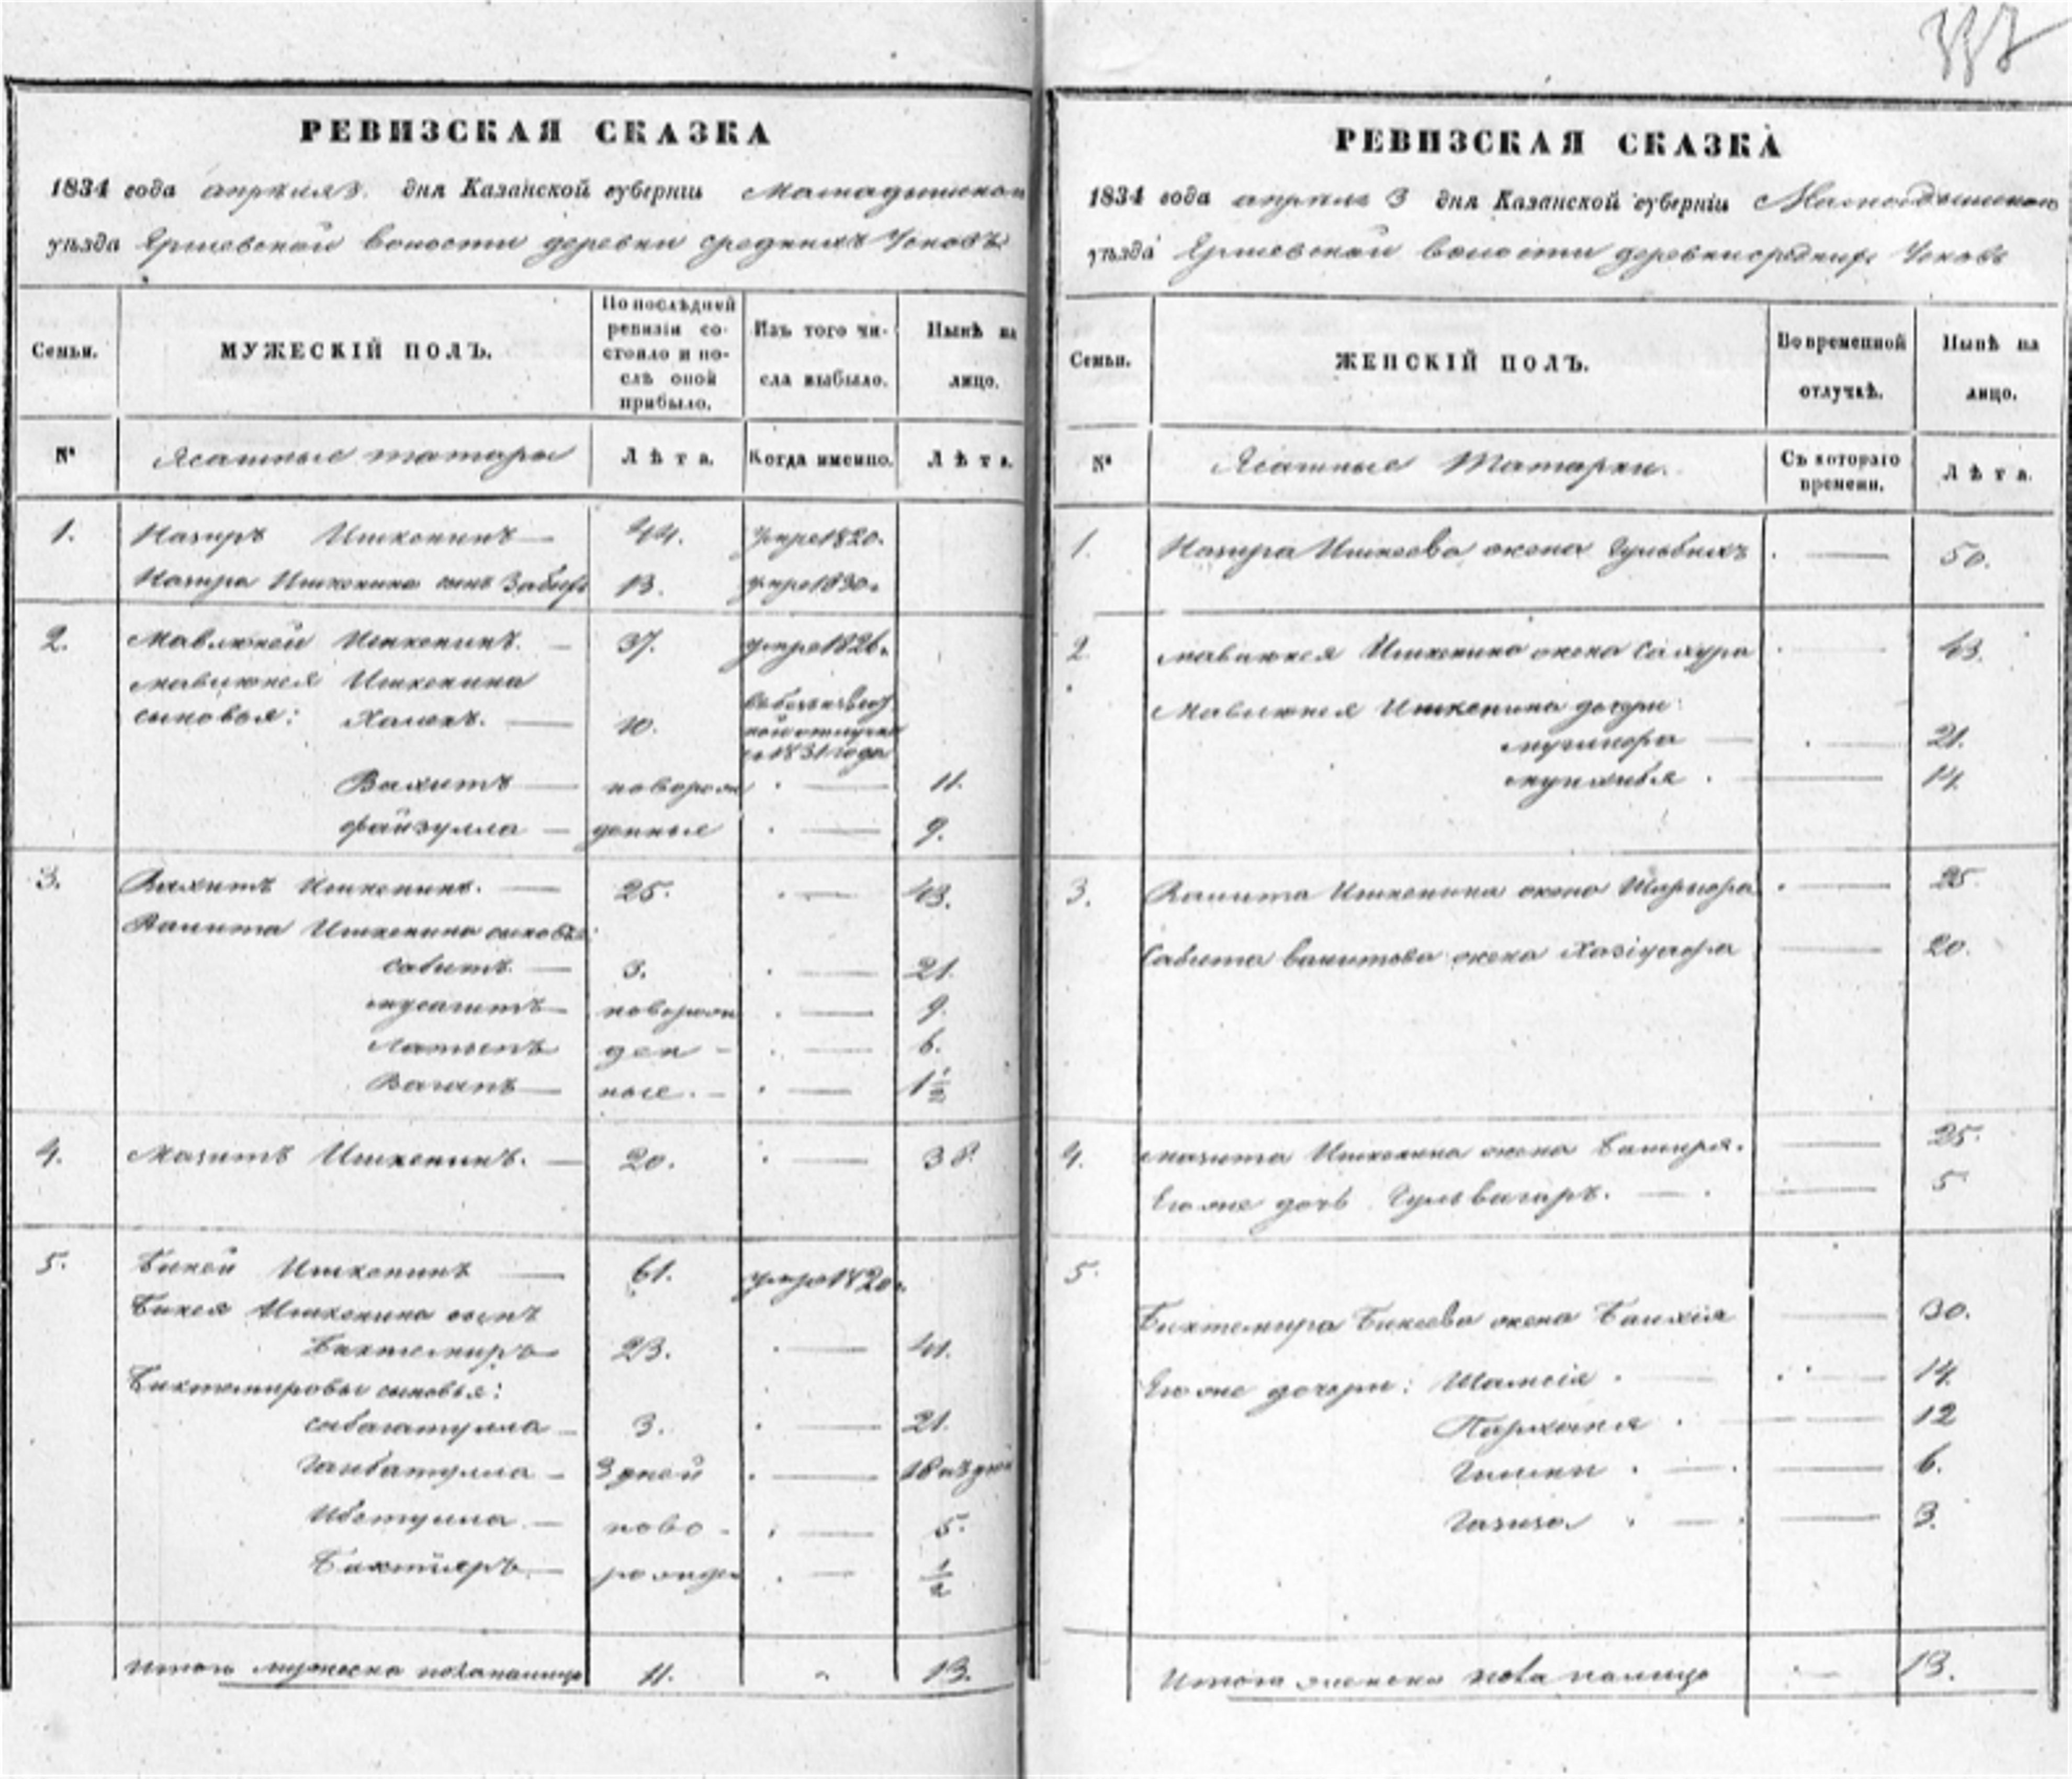 337
РЕВИЗСКАЯ СКАЗКА
1834 года апреля 3. дня Казанской губерніи Мамадышскаго
уѣзда Ершевской волости деревни средних Усковъ
Семьи.
МУЖЕСКІЙ ПОЛЪ.
По послѣдней ревизіи состояло и послѣ оной прибыло.
Изъ того числа выбыло.
Нынѣ на лицо.
№
Ясашные татары
Лѣта.
Когда именно.
Лѣта.
1. Назиръ Ишкенинъ — 44. умре 1820.
Назира Ишкенина сынъ 13. умре 1830.
2. Мавлюкей Ишкенинъ. — 37. умре 1826.
Мавлюкея Ишкенина
сыновья: Халекъ. — 10. отлучке
1831 года
Вахитъ — новорож · — 11.
Файзулла — денные · — 9.
3. Вахитъ Ишкенинъ. — 25. · — 43.
Вахита Ишкенина сыновья:
Сабитъ. — 3. · — 21.
Мусагитъ — новорож · — 9.
Латыпъ ден - · — 6.
Вагапъ — ные. - · — 1½
4. Мазитъ Ишкенинъ. — 20. · — 38.
5. Бикей Ишкенинъ — 61. умре 1820.
Бикея Ишкенина сынъ
Биктемиръ 23. · — 41.
Биктемировы сыновья:
Сибагатулла — 3. · — 21.
3 дней · — 18
Ибетулла — ново - · — 5.
Бахтияръ — рожден · — ½
Итого мужеска пола налицо 11. „ 13.
РЕВИЗСКАЯ СКАЗКА
1834 года апреля 3 дня Казанской губерніи Мамадышскаго
уѣзда Ершевской волости деревни средних Усковъ
Семьи.
ЖЕНСКІЙ ПОЛЪ.
Во временной отлучкѣ.
Нынѣ на лицо.
№
Ясашные Татарки.
Съ котораго времени.
Лѣта.
1. Назира Ишкеева жена · — 50.
2. Мавлюкея Ишкенина жена Сахура · — 43.
Мавлюкея Ишкенина дочери:
— · — 21.
· — 14.
3. Вахита Ишкенина жена · — 25.
Сабита Вахитова жена — 20.
4. Мазита Ишкенина жена — 25.
Его же дочь — · — 5
5.
Биктемира Бикеева жена — 30.
Его же дочери: Шамсія · — · — 14.
· — — 12
· — · — 6.
Газиза · — · — 3.
Итого женска пола налицо · — 13.